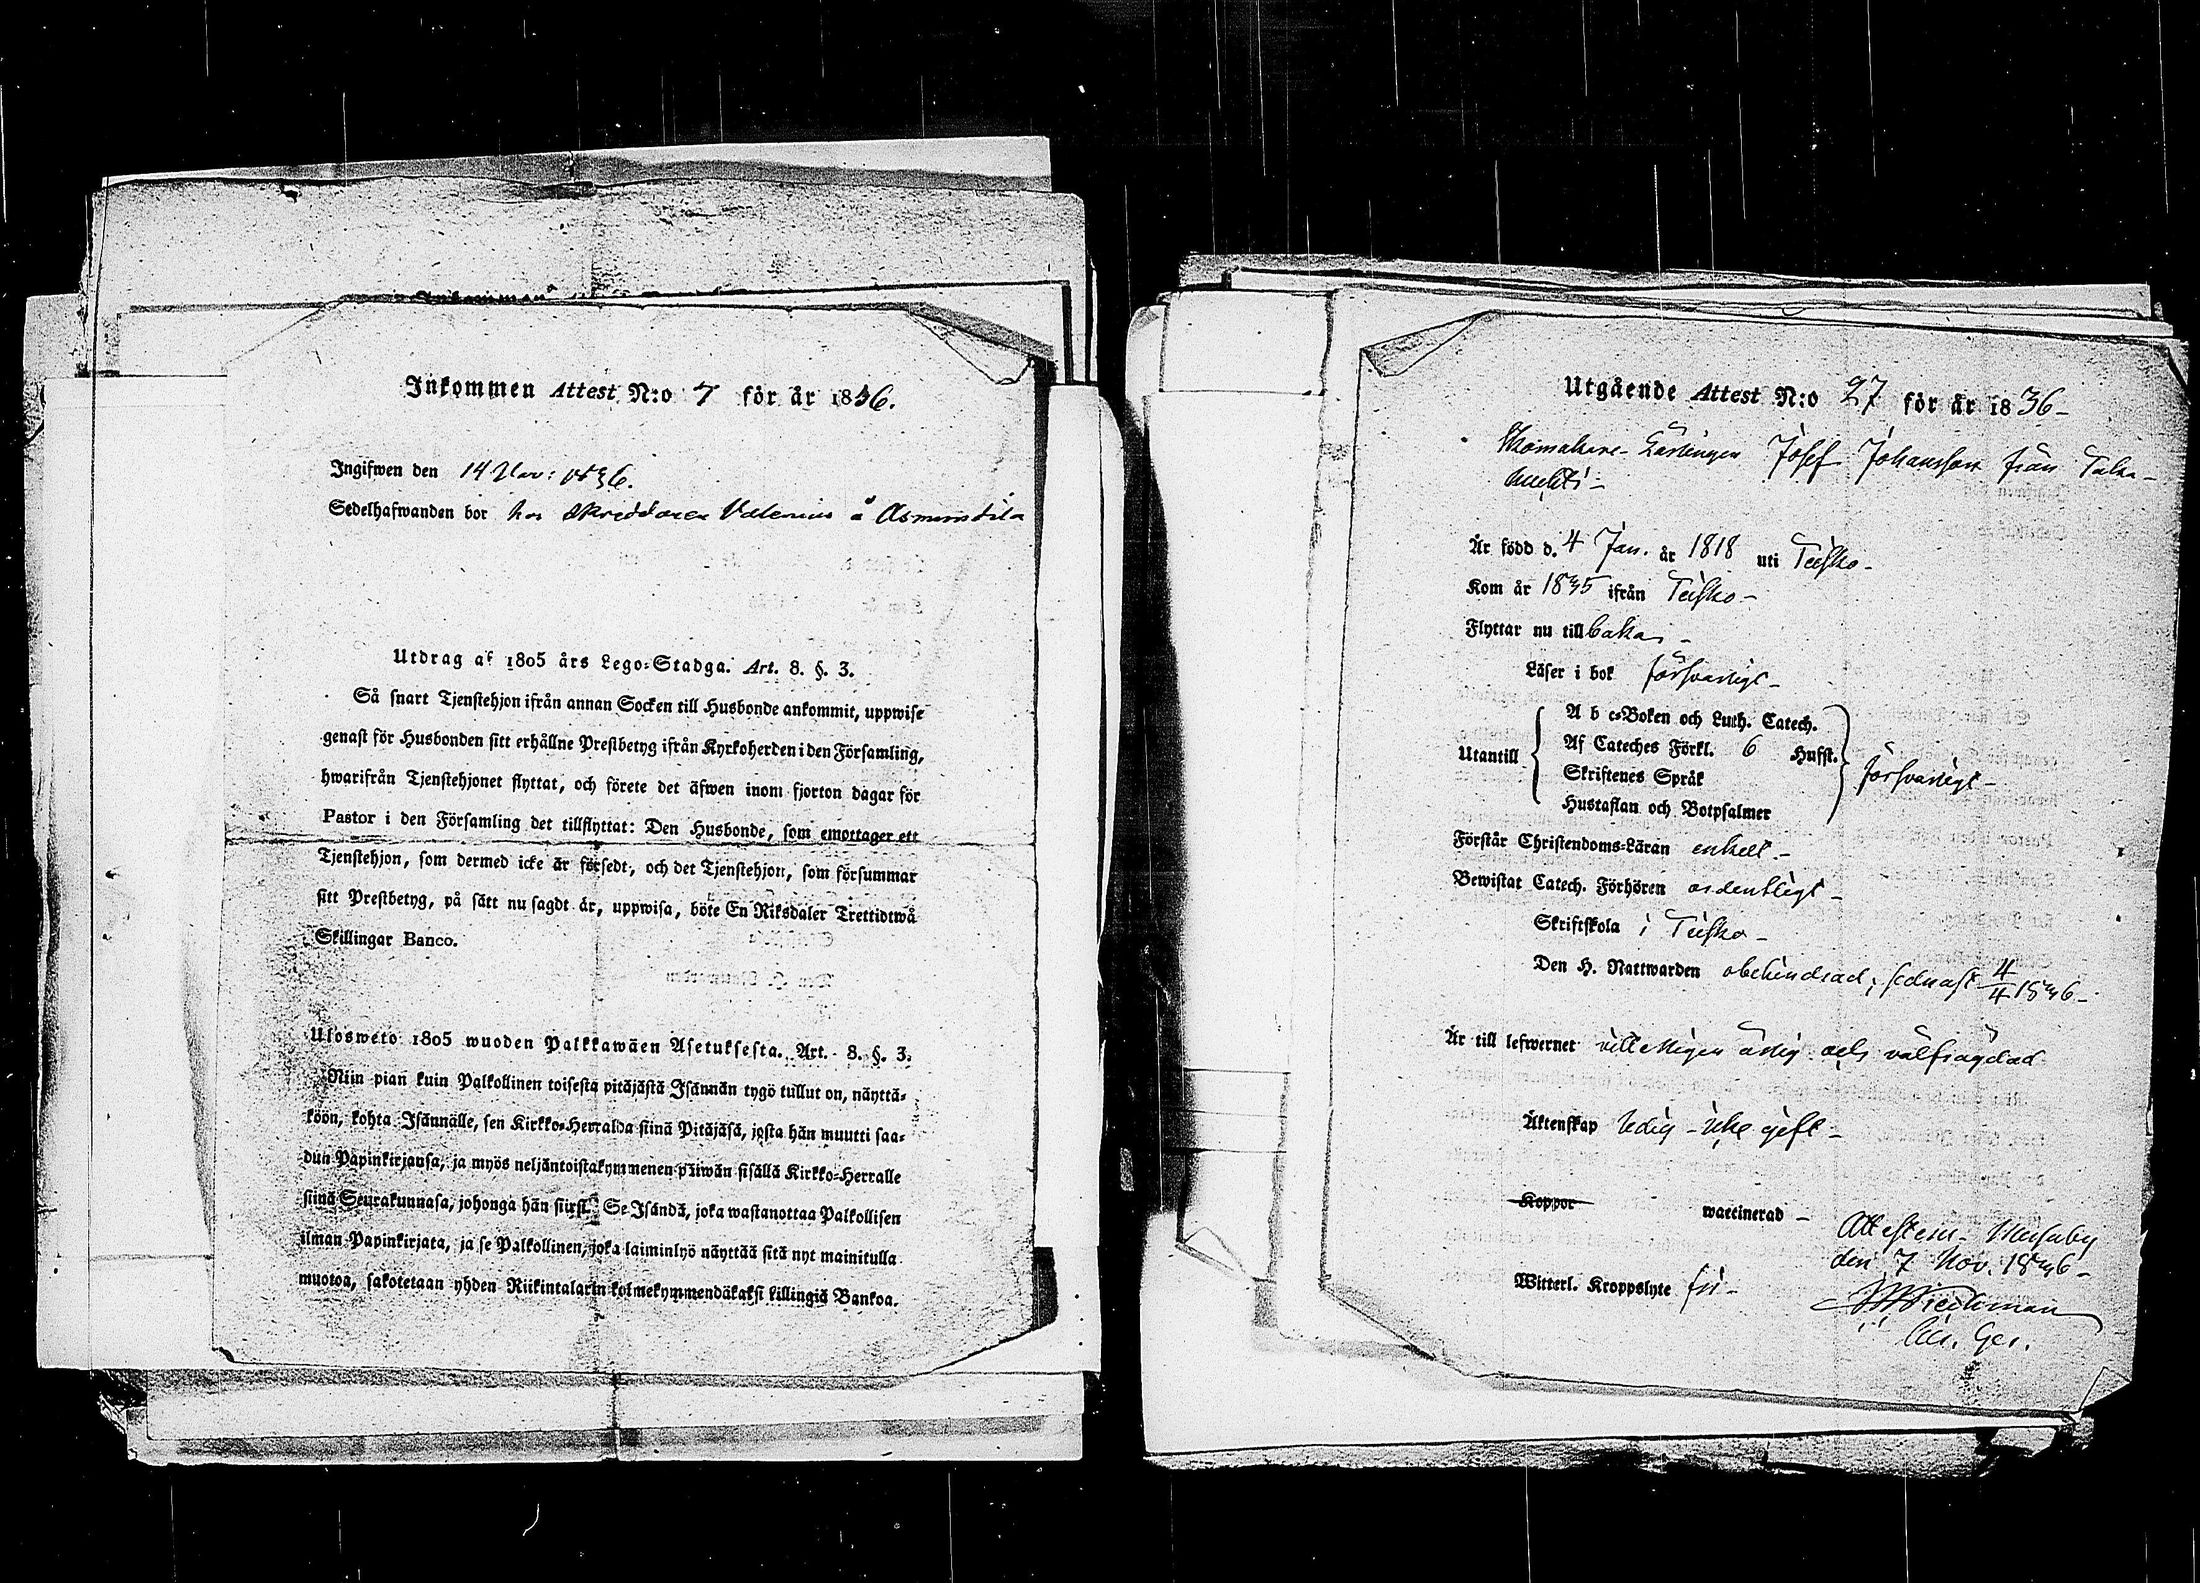 Inkommen Attest N:o 7 för år 1836.
Ingifwen den 14 Nov: 1836.
Sedelhafwanden bor hos Skreddaren Valenius å Asmundila
Utdrag af 1805 års Lego-Stadga. Art. 8. §. 3.
Så snart Tjenstehjon ifrån annan Socken till Husbonde ankommit, uppwise
genast för Husbonden sitt erhållne Prestbetyg ifrån Kyrkoherden i den Församling,
hwarifrån Tjenstehjonet flyttat, och förete det äfwen inom fjorton dagar för
Pastor i den Församling det tillflyttat: Den Husbonde, som emottager ett
Tjenstehjon, som dermed icke är försedt, och det Tjenstehjon, som försummar
sitt Prestbetyg, på sätt nu sagdt är, uppwisa, böte En Riksdaler Trettidtwå
Skillingar Banco.
Ulosweto 1805 wuoden Palkkawäen Asetuksesta. Art. 8. §. 3.
Niin pian kuin Palkollinen toisesta pitäjästä Isännän tygö tullut on, näyttä-
köön, kohta Isännälle, sen Kirkko-Herralda siinä Pitäjäsä, josta hän muutti saa-
dun Papinkirjansa, ja myös neljäntoistakymmenen päiwän sisällä Kirkko-Herralle
siinä Seurakunnasa, johonga hän siirsi. Se Isändä, joka wastanottaa Palkollisen
ilman Papinkirjata, ja se Palkollinen, joka laiminlyö näyttää sitä nyt mainitulla
muotoa, sakotetaan yhden Riikintalarin kolmekymmendäkaksi killingiä Bankoa.
Utgående Attest N:o 27 för år 1836-
Skomakare-Lärlingen Josef Johansson från Talka-
Är född d. 4 Jan. år 1818 uti Teisko-
Kom år 1835 ifrån Teisko-
Flyttar nu tillbaka-
Läser i bok försvarligt-
A b c-Boken och Luth. Catech.
Utantill Af Cateches Förkl. 6 Hufst. försvarligt-
Skriftenes Språk
Hustaflan och Botpsalmer
Förstår Christendoms-Läran enkelt.-
Bewistat Catech. Förhören ordentligt-
Skriftskola i Teisko-
Den H. Nattwarden obehindrad; sednast 4/4 1836-
Är till lefwernet veterligen ärlig och välfrägdad
Äktenskap ledig-icke gift-
Koppor waccinerad-
Attesteras- Messuby
den 7 Nov. 1836-
Witterl. Kroppslyte fri-